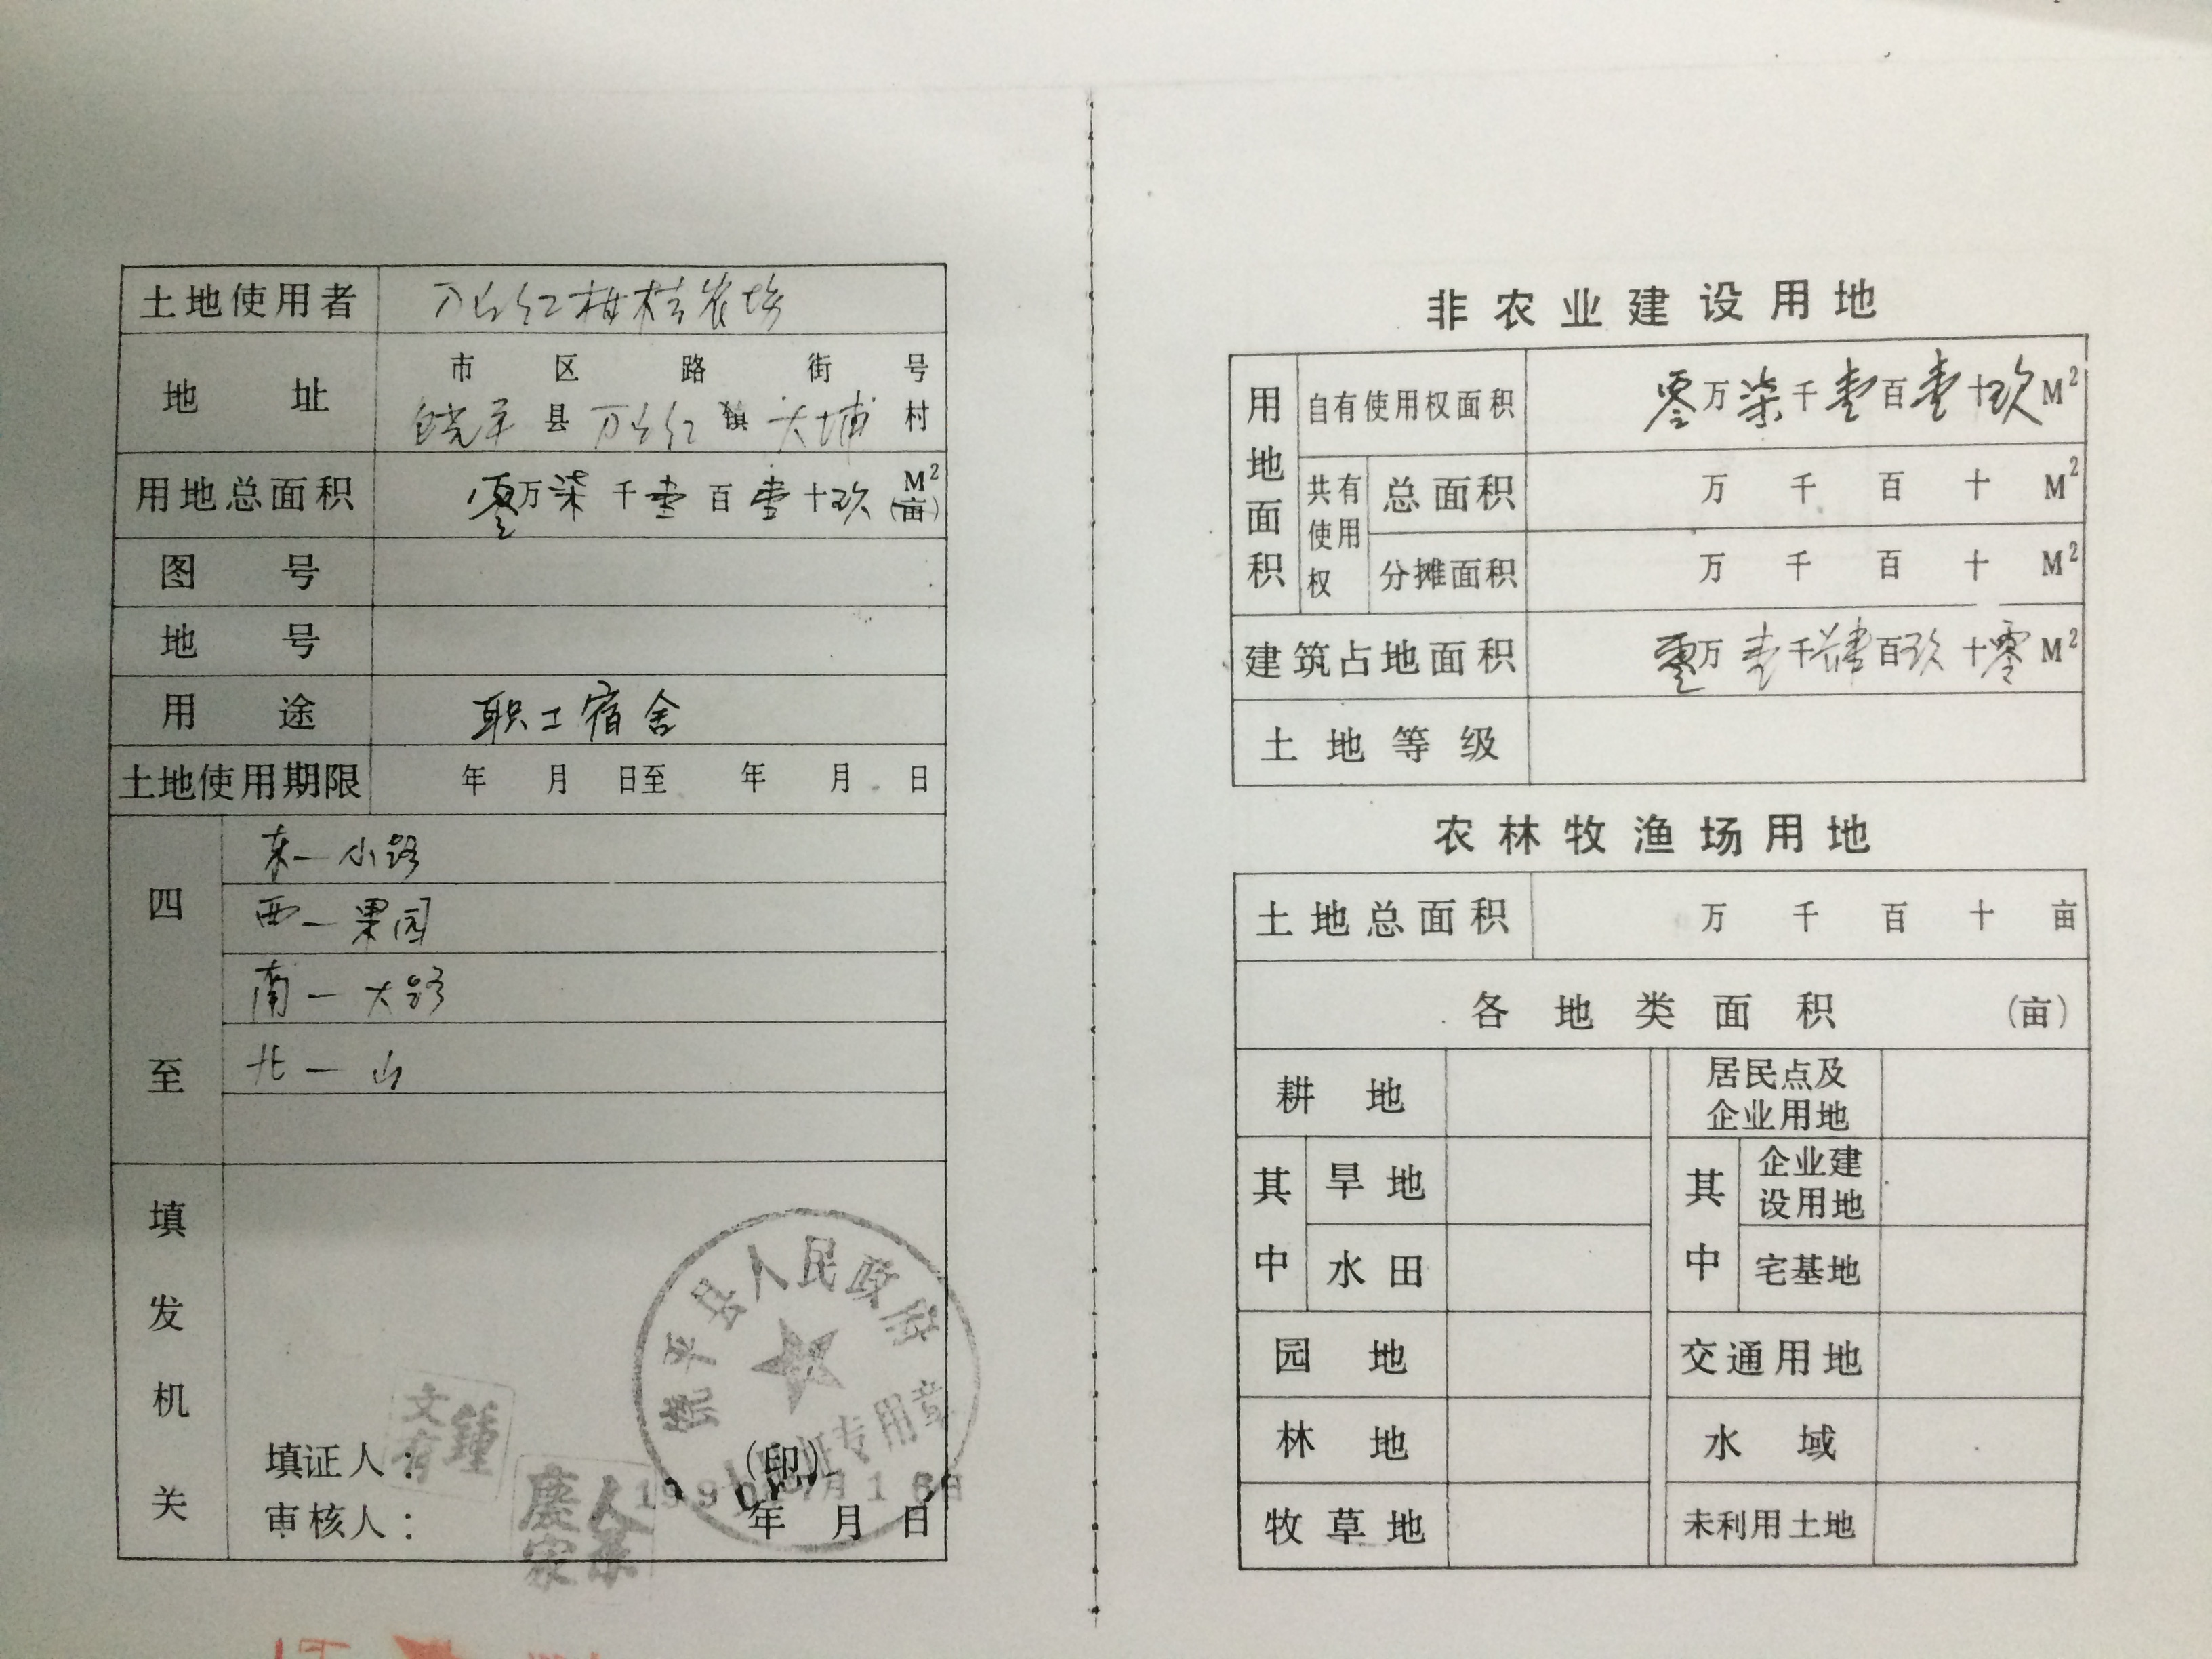 土地使用者 万山红柑桔农场
地址 市 区 路 街 号
饶平 县 万山红 镇 大埔 村
用地总面积 零万柒千壹百壹十玖 M²(亩)
图号
地号
用途 职工宿舍
土地使用期限 年 月 日至 年 月 日
四至
东一小路
西一果园
南一大路
北一山
填发机关
饶平县人民政府
专用章
文有 鍾
填证人: (印)
审核人: 年 月 日
非农业建设用地
用地面积
自有使用权面积 零万柒千壹百壹十玖M²
共有使用权
总面积 万 千 百 十 M²
分摊面积 万 千 百 十 M²
建筑占地面积 零万壹千肆百玖十零M²
土地等级
农林牧渔场用地
土地总面积 万 千 百 十 亩
各地类面积 (亩)
耕地 居民点及企业用地
其中 旱地 其中 企业建设用地
水田 宅基地
园地 交通用地
林地 水域
牧草地 未利用土地